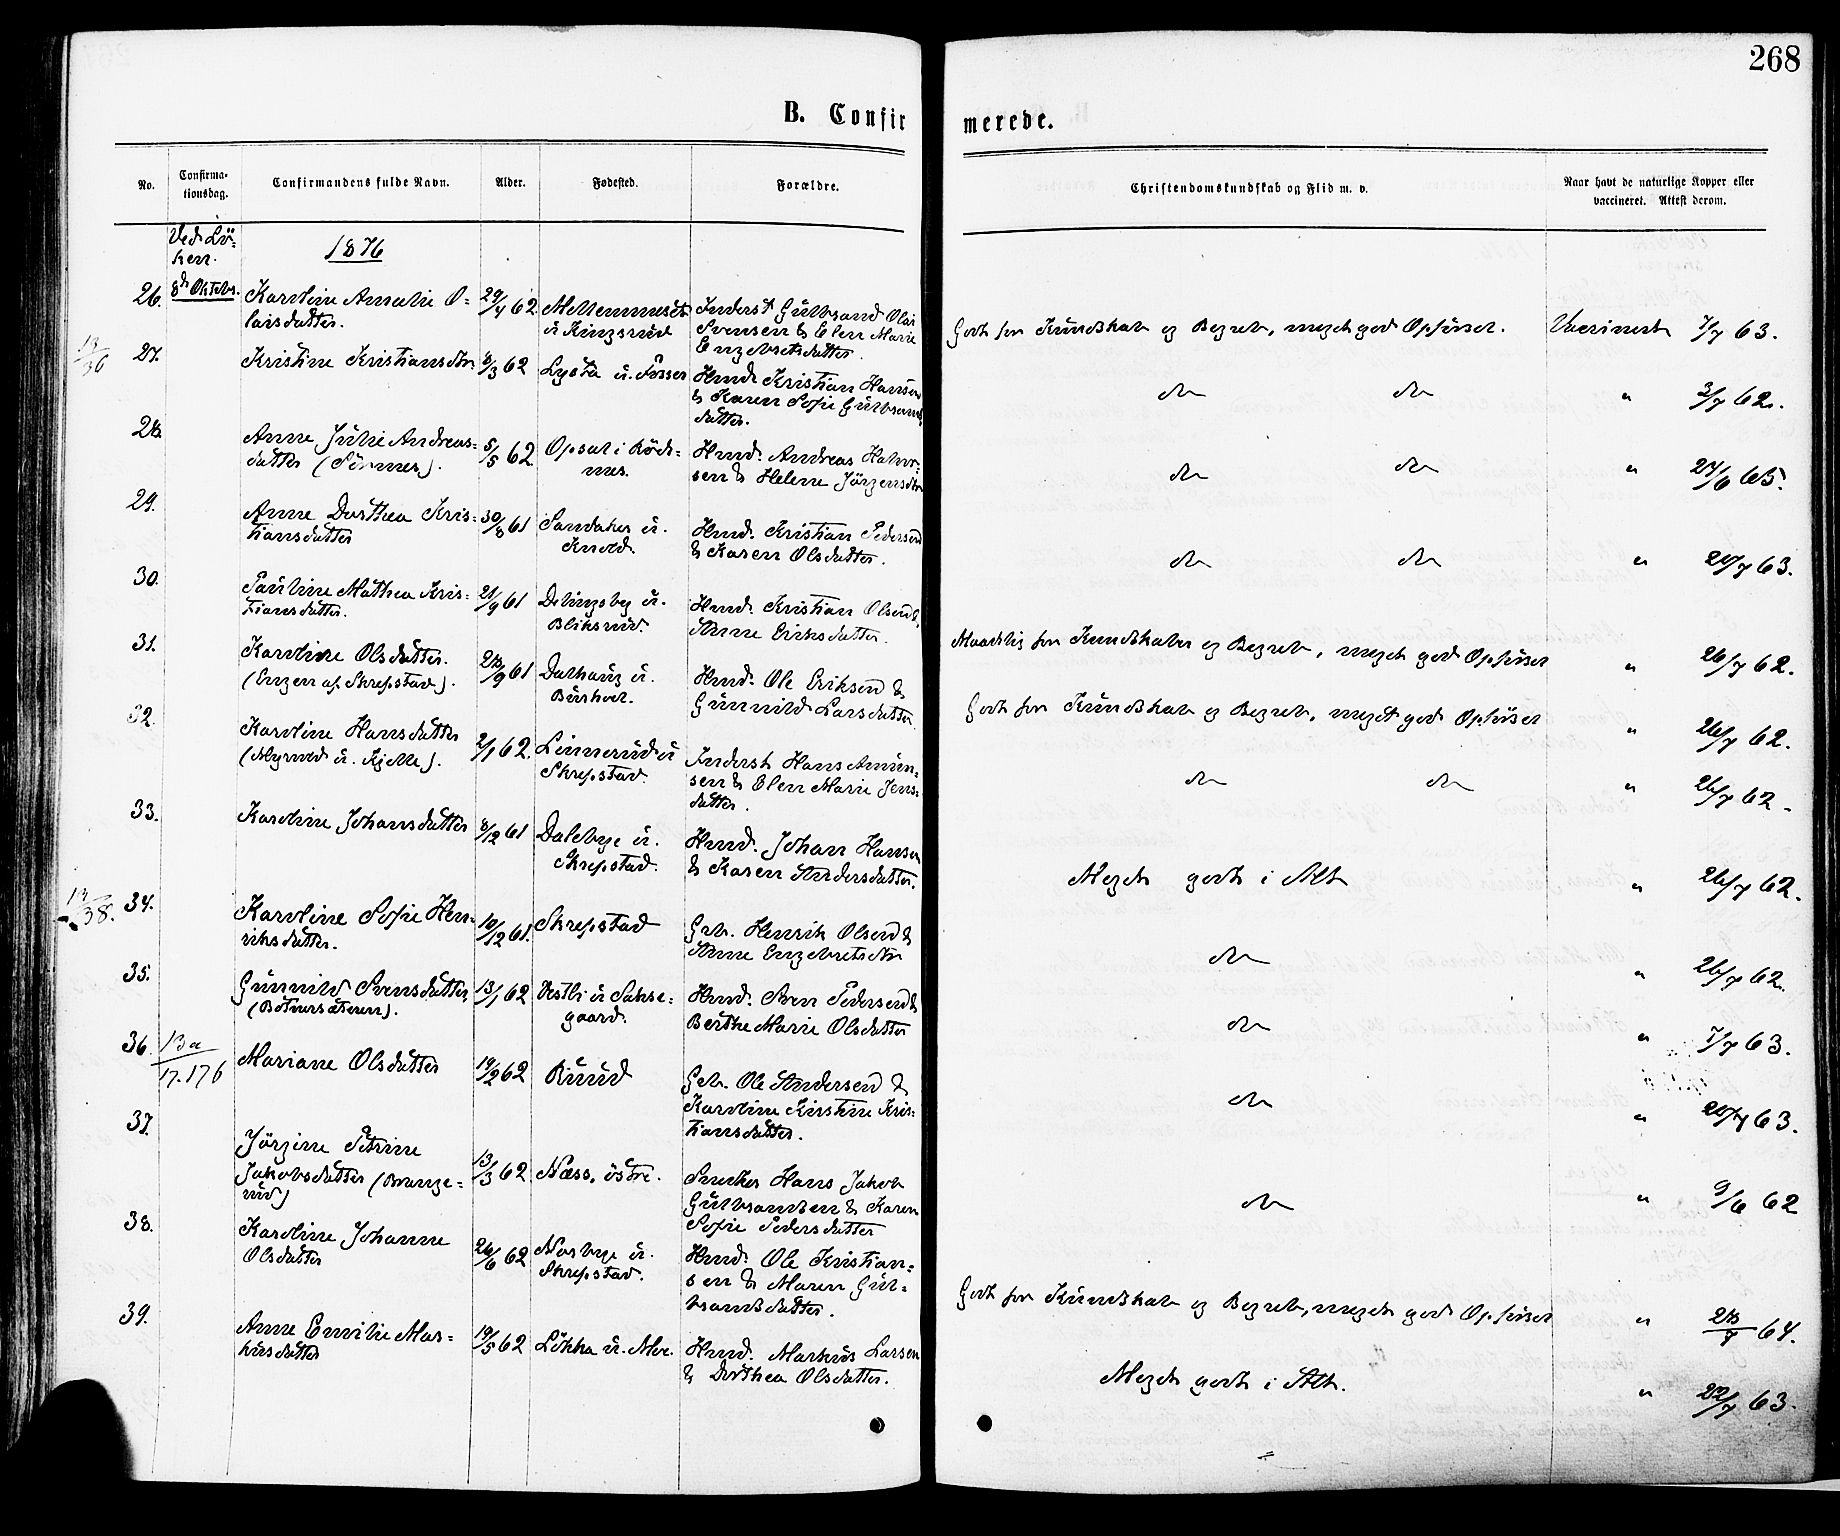 268
B. Confirmerede.
No.
Confirmationsdag.
Confirmandens fulde Navn.
Alder.
Fødested.
Forældre.
Christendomskundskab og Flid m. v.
Naar havt de naturlige Kopper eller
vaccineret. Attest derom.
1876
8de Oktobr.
26.
Karoline Amalie O-
laisdatter.
29/4 62
u Kingsrud
Inderst Gulbrand Olai
Svensen & Elen Marie
Engebretsdatter.
Godt for Kundskab og Begreb, meget god Opførsel.
Vaccineret 7/7 63.
27.
Kristine Kristiansdtr
8/3 62
u. Fosser
Hmd. Kristian Hansen
& Karen Sofie Gulbrands
datter.
do do
" 3/7 62.
28.
Anne Julie Andreas-
datter
5/5 62
Opsal i Røde-
næs.
Hmd. Andreas Halvor-
sen & Helene Jörgensdtr
do do
" 24/6 65.
29.
Anne Dorthea Kris-
tiansdatter
30/8 61
Sandaker u.
Hmd. Kristian Pedersen
& Karen Olsdatter.
do do
63.
30.
Pauline Mathea Kris-
tiansdatter.
21/9 61
Bliksrud.
Hmd. Kristian Olsen &
Anne Eriksdatter.
Maadelig for Kundskaber og Begreb, meget god Opførsel
" 26/7 62.
31.
Karoline Olsdatter.
(Engen af Skrepstad).
61
Dalhaug u.
Hmd. Ole Eriksen &
Gunnild Larsdatter
Godt for Kundskab og Begreb, meget god Opførsel
" 26/7 62.
32.
Karoline Hansdatter
(Myrvold u. Kjelle).
2/1 62.
Linnerud u
Skrepstad.
Inderst Hans Amun-
sen & Elen Marie Jens-
datter.
do do
" 26/7 62.
33.
Karoline Johansdatter
8/12 61
Dalebye u.
Skrepstad.
Hmd. Johan Hansen
& Karen Andersdatter.
Meget godt i Alt
" 26/7 62.
34.
Karoline Sofie Hen-
riksdatter.
10/12 61.
Skrepstad
Grb. Henrik Olsen &
Anne Engebretsdtr
do
" 26/7 62.
35.
Gunnild Svensdatter
(Botnersæteren).
13/1 62
Vestbi u Sakse-
gaard.
Hmd. Sven Pedersen &
Berthe Marie Olsdatter
do
" 7/7 63.
36.
13a
17.176
Mariane Olsdatter
19/2 62
Ruud
Grb. Ole Andersen &
Karoline Kirstine Kris-
tiansdatter.
do
63.
37.
Jörgine Petrine
Jakobsdatter (Brange-
rud)
13/3 62
Næss, östre.
Snedker Hans Jakob
Gulbrandsen & Karen
Sofie Pedersdatter
do
" 9/6 62
38.
Karoline Johanne
Olsdatter
26/6 62
Norbye u.
Skrepstad.
Hmd. Ole Kristian-
sen & Maren Gul-
brandsdatter.
Godt for Kundskab og Begreb, meget god Opførsel
64.
39.
Anne Emilie Mar-
kusdatter
19/5 62
Lökka u. Moe.
Hmd. Markus Larsen
& Dorthea Olsdatter.
Meget godt i Alt.
" 22/7 63.